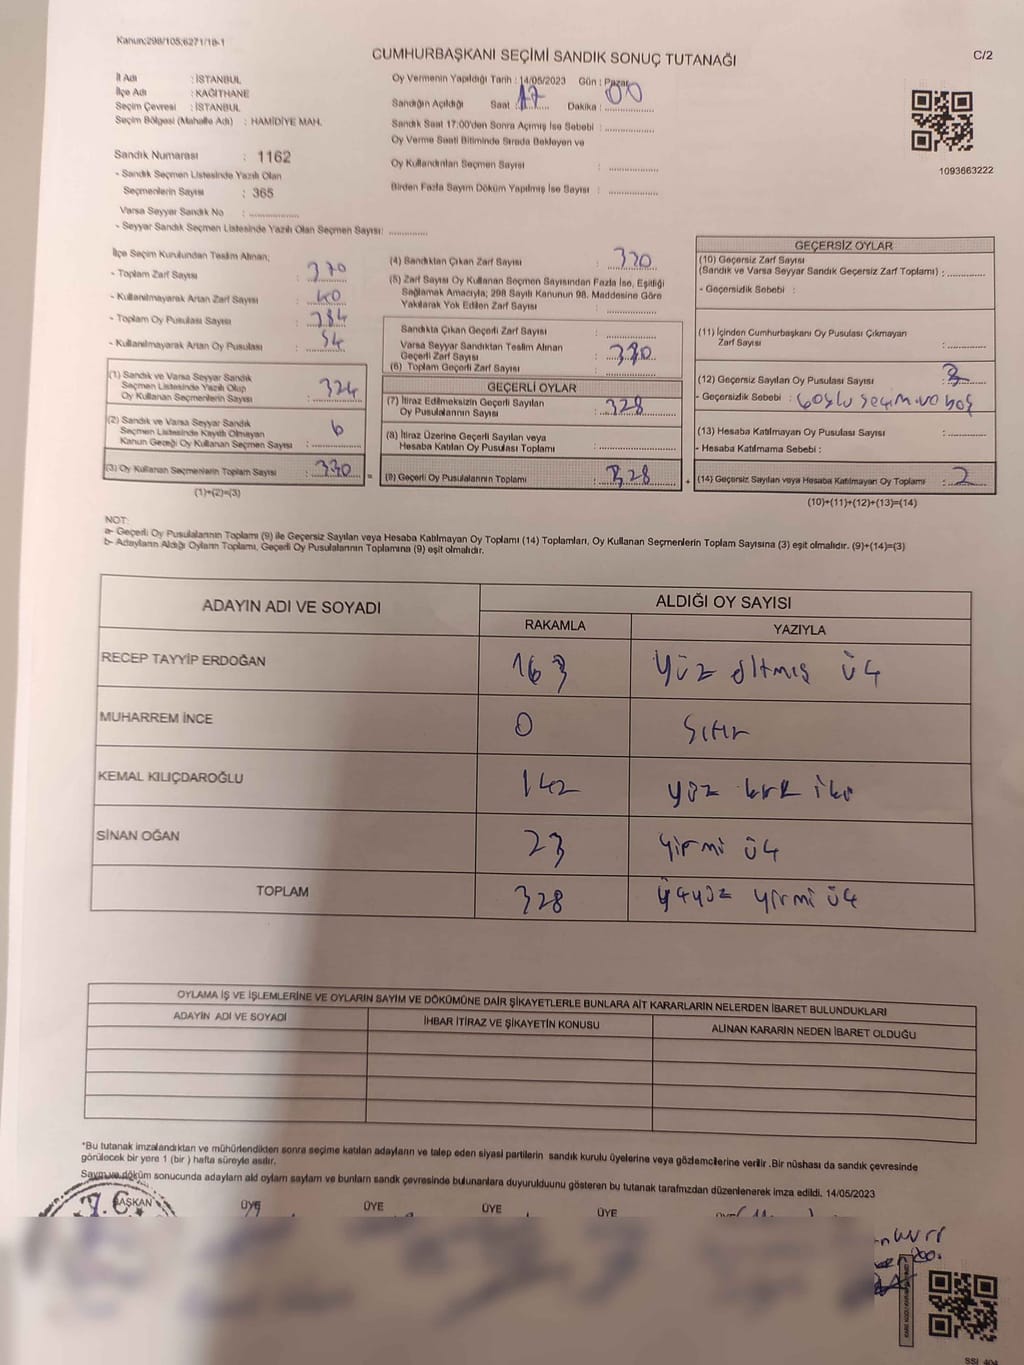 Kanun;298/105;6271/18-1
CUMHURBAŞKANI SEÇİMİ SANDIK SONUÇ TUTANAĞI
C/2
İl Adı : İSTANBUL
İlçe Adı : KAĞITHANE
Seçim Çevresi : İSTANBUL
Seçim Bölgesi (Mahalle Adı) : HAMİDİYE MAH.
Sandık Numarası : 1162
- Sandık Seçmen Listesinde Yazılı Olan
Seçmenlerin Sayısı : 365
Varsa Seyyar Sandık No : ..............
- Seyyar Sandık Seçmen Listesinde Yazılı Olan Seçmen Sayısı: ............
Oy Vermenin Yapıldığı Tarih : 14/05/2023 Gün : Pazar
Sandığın Açıldığı Saat : 17 Dakika : 00
Sandık Saat 17:00'den Sonra Açılmış İse Sebebi : ..............
Oy Verme Saati Bitiminde Sırada Bekleyen ve
Oy Kullandırılan Seçmen Sayısı : ..............
Birden Fazla Sayım Döküm Yapılmış İse Sayısı : ..............
1093663222
İlçe Seçim Kurulundan Teslim Alınan;
- Toplam Zarf Sayısı : 370
- Kullanılmayarak Artan Zarf Sayısı : 40
- Toplam Oy Pusulası Sayısı : 384
- Kullanılmayarak Artan Oy Pusulası : 54
(1) Sandık ve Varsa Seyyar Sandık
Seçmen Listesinde Yazılı Olup
Oy Kullanan Seçmenlerin Sayısı : 324
(2) Sandık ve Varsa Seyyar Sandık
Seçmen Listesinde Kayıtlı Olmayan
Kanun Gereği Oy Kullanan Seçmen Sayısı : 6
(3) Oy Kullanan Seçmenlerin Toplam Sayısı : 330
(1)+(2)=(3)
(4) Sandıktan Çıkan Zarf Sayısı : 330
(5) Zarf Sayısı Oy Kullanan Seçmen Sayısından Fazla İse, Eşitliği
Sağlamak Amacıyla; 298 Sayılı Kanunun 98. Maddesine Göre
Yakılarak Yok Edilen Zarf Sayısı : ..............
Sandıkta Çıkan Geçerli Zarf Sayısı : ..............
Varsa Seyyar Sandıktan Teslim Alınan
Geçerli Zarf Sayısı : 330
(6) Toplam Geçerli Zarf Sayısı : ..............
GEÇERLİ OYLAR
(7) İtiraz Edilmeksizin Geçerli Sayılan
Oy Pusulalarının Sayısı : 328
(8) İtiraz Üzerine Geçerli Sayılan veya
Hesaba Katılan Oy Pusulası Toplamı : ..............
(9) Geçerli Oy Pusulalarının Toplamı : 328
GEÇERSİZ OYLAR
(10) Geçersiz Zarf Sayısı
(Sandık ve Varsa Seyyar Sandık Geçersiz Zarf Toplamı) : ............
- Geçersizlik Sebebi :
(11) İçinden Cumhurbaşkanı Oy Pusulası Çıkmayan
Zarf Sayısı : ............
(12) Geçersiz Sayılan Oy Pusulası Sayısı :
- Geçersizlik Sebebi : seçim ve boş
(13) Hesaba Katılmayan Oy Pusulası Sayısı : ............
- Hesaba Katılmama Sebebi :
(14) Geçersiz Sayılan veya Hesaba Katılmayan Oy Toplamı : 2
(10)+(11)+(12)+(13)=(14)
NOT:
a- Geçerli Oy Pusulalarının Toplamı (9) ile Geçersiz Sayılan veya Hesaba Katılmayan Oy Toplamı (14) Toplamları, Oy Kullanan Seçmenlerin Toplam Sayısına (3) eşit olmalıdır. (9)+(14)=(3)
b- Adayların Aldığı Oyların Toplamı, Geçerli Oy Pusulalarının Toplamına (9) eşit olmalıdır.
ADAYIN ADI VE SOYADI
ALDIĞI OY SAYISI
RAKAMLA YAZIYLA
RECEP TAYYİP ERDOĞAN 163 yüz altmış üç
MUHARREM İNCE 0 Sıfır
KEMAL KILIÇDAROĞLU 142 yüz kırk iki
SİNAN OĞAN 23 yirmi üç
TOPLAM 328 üçyüz yirmi üç
OYLAMA İŞ VE İŞLEMLERİNE VE OYLARIN SAYIM VE DÖKÜMÜNE DAİR ŞİKAYETLERLE BUNLARA AİT KARARLARIN NELERDEN İBARET BULUNDUKLARI
ADAYIN ADI VE SOYADI
İHBAR İTİRAZ VE ŞİKAYETİN KONUSU
ALINAN KARARIN NEDEN İBARET OLDUĞU
*Bu tutanak imzalandıktan ve mühürlendikten sonra seçime katılan adayların ve talep eden siyasi partilerin sandık kurulu üyelerine veya gözlemcilerine verilir .Bir nüshası da sandık çevresinde
görülecek bir yere 1 (bir ) hafta süreyle asılır.
Sayım ve döküm sonucunda adayların aldı oyların sayların ve bunların sandık çevresinde bulunanlara duyurulduunu gösteren bu tutanak tarafmzdan düzenlenerek imza edildi. 14/05/2023
T.C.
BAŞKAN ÜYE ÜYE ÜYE ÜYE